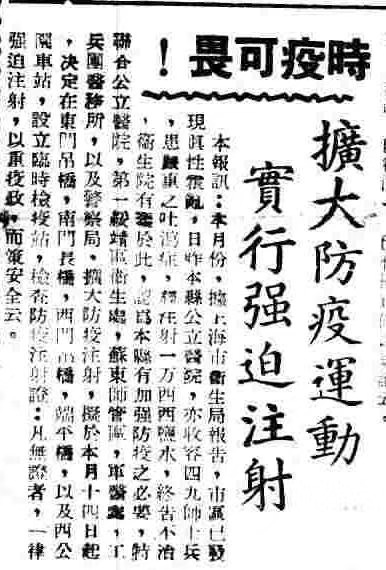 時疫可畏！
擴大防疫運動
實行强迫注射
本報訊：本月份，據上海市衛生局報告，市區已發
現眞性霍亂，日昨本縣公立醫院，亦收容四九師士兵
，患嚴重之吐瀉症，經注射一万西西鹽水，終告不治
，衛生院有鑒於此，認爲本縣有加强防疫之必要，特
聯合公立醫院，第一綏靖區衛生處，蘇東師管區，軍醫處，工
兵團醫務所，以及警察局，擴大防疫注射，擬於本月十四日起
，决定在東門吊橋，南門長橋，西門吊橋，端平橋，以及西公
園車站，設立臨時檢疫站，檢查防疫注射證：凡無證者，一律
强迫注射，以重疫政，而策安全云。